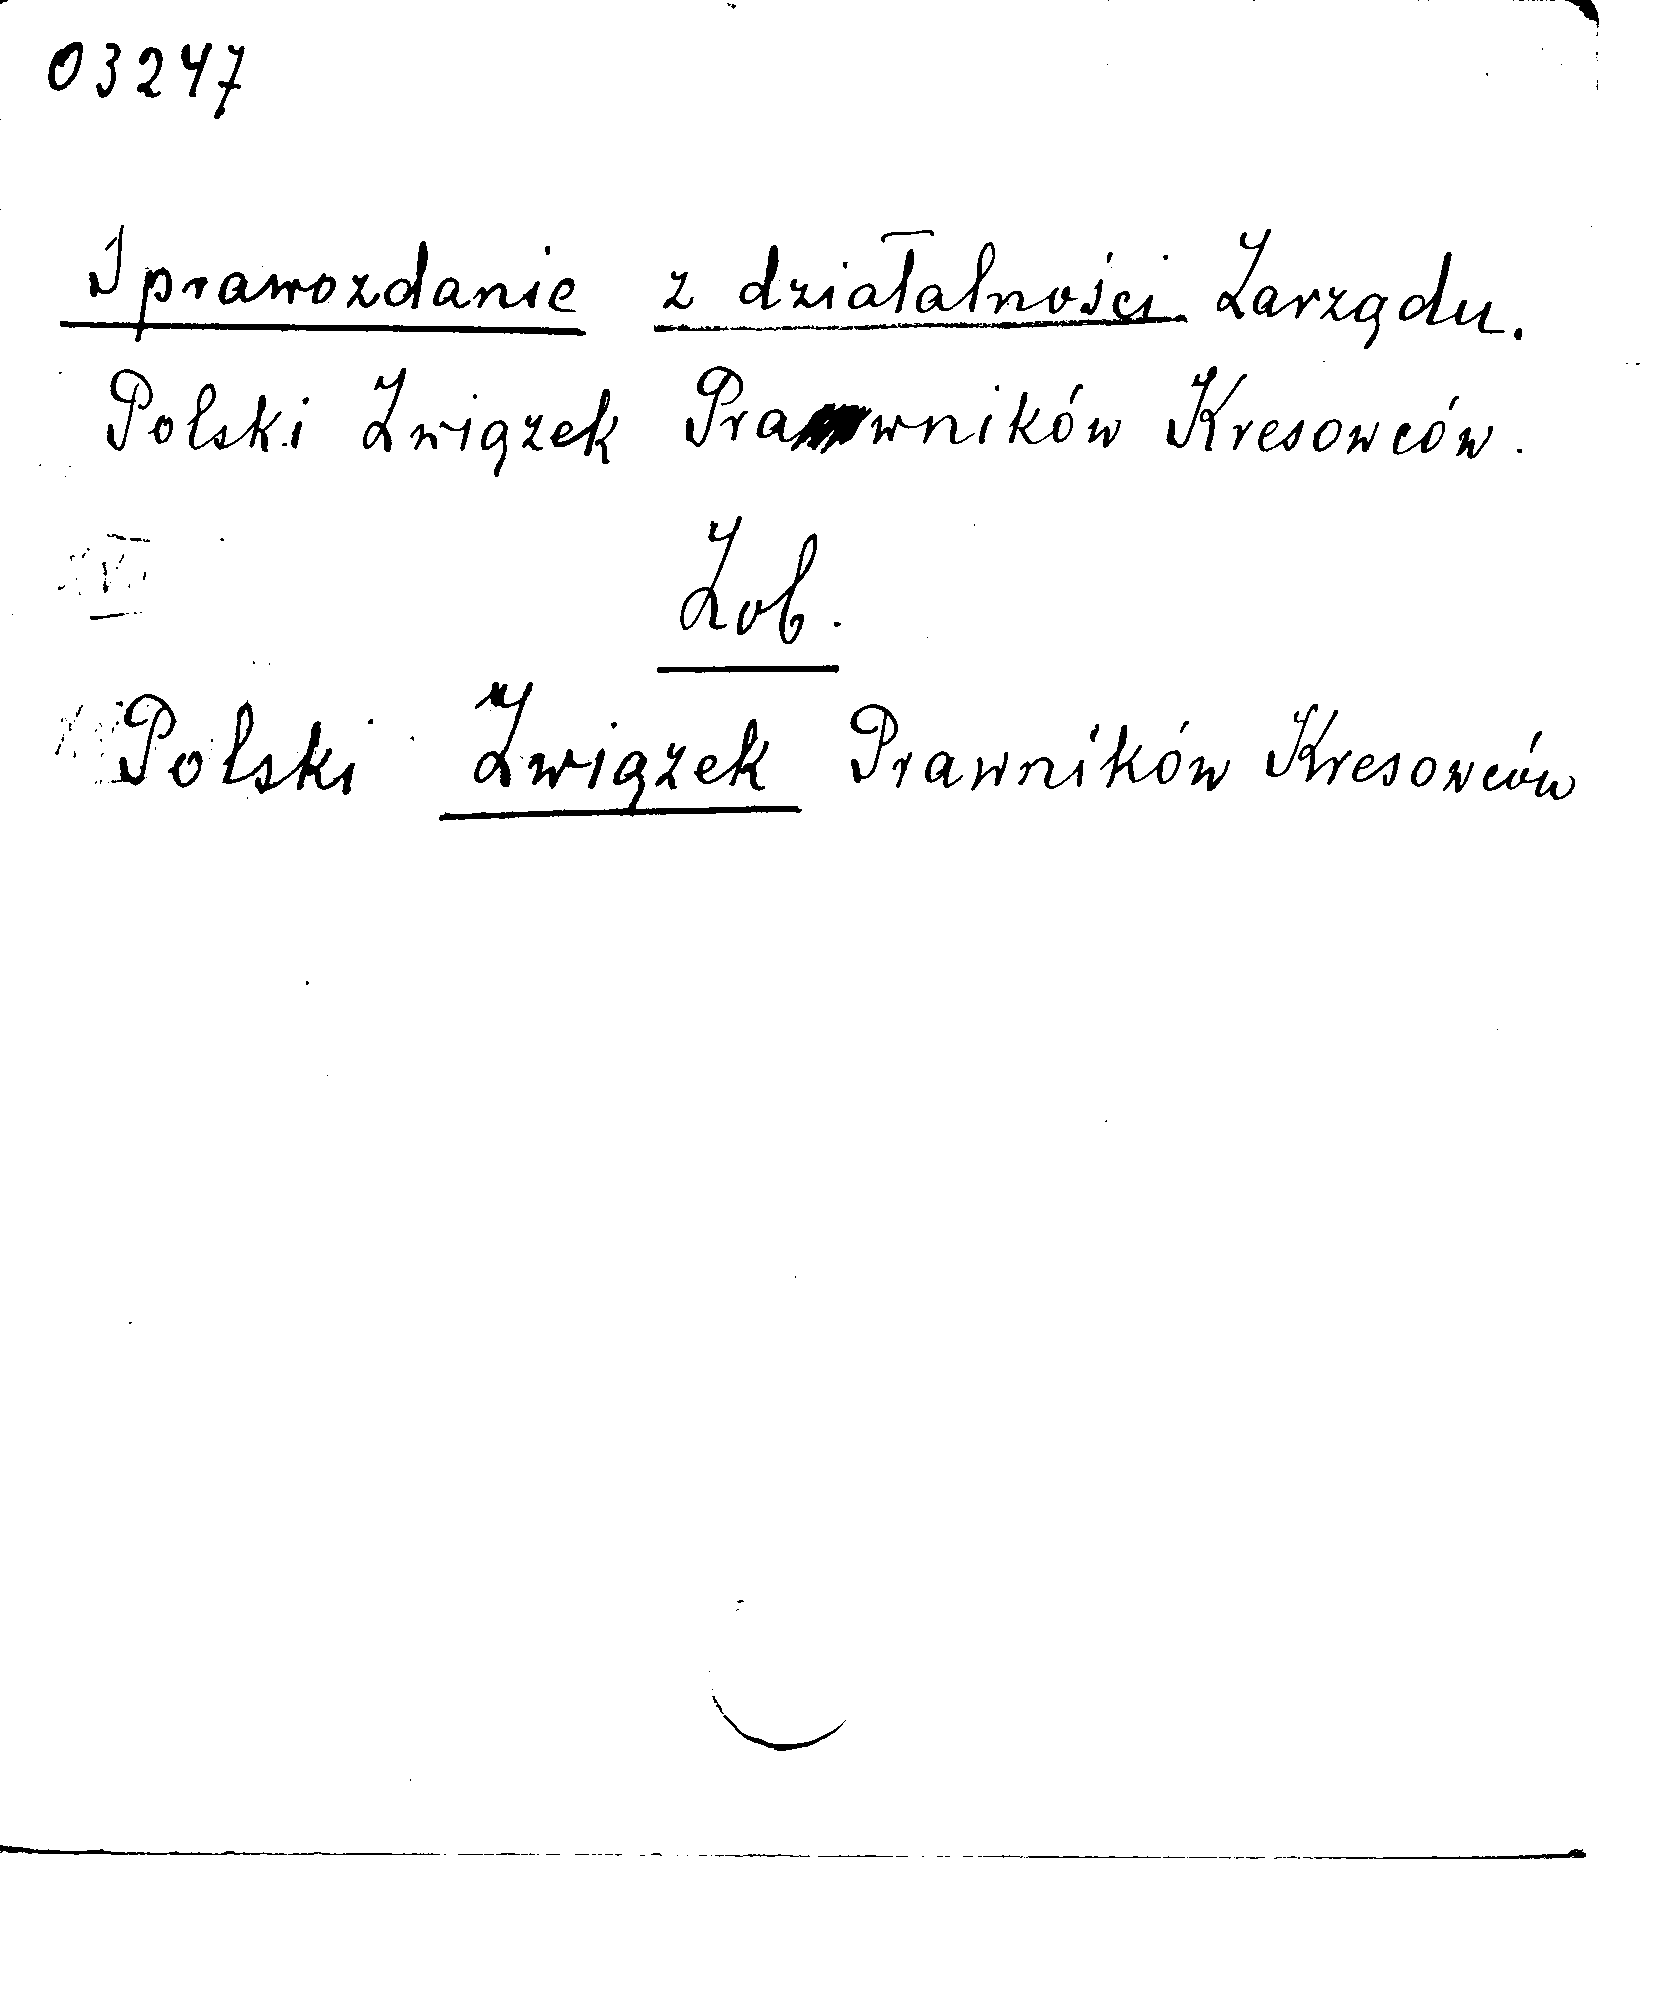 03247
Sprawozdanie z działalności Zarządu.
Polski Związek Prawników Kresowców.
Zob.
Polski Związek Prawników Kresowców